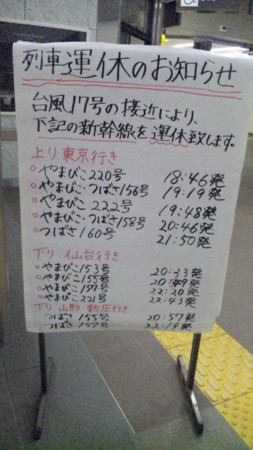 列車運休のお知らせ
台風17号の接近により、
下記の新幹線を運休致します。
上り 東京行き
○やまびこ220号 18:46発
○やまびこ・つばさ156号 19:19発
○やまびこ 222号 19:48発
○やまびこ・つばさ158号 20:46発
○つばさ160号 21:50発
下り 仙台行き
○やまびこ153号 20:33発
○やまびこ155号
○やまびこ 22:20発
○やまびこ221号 22:43発
下り 山形 新庄行き
つばさ 155号 20:57発
つばさ 157号 22:19発